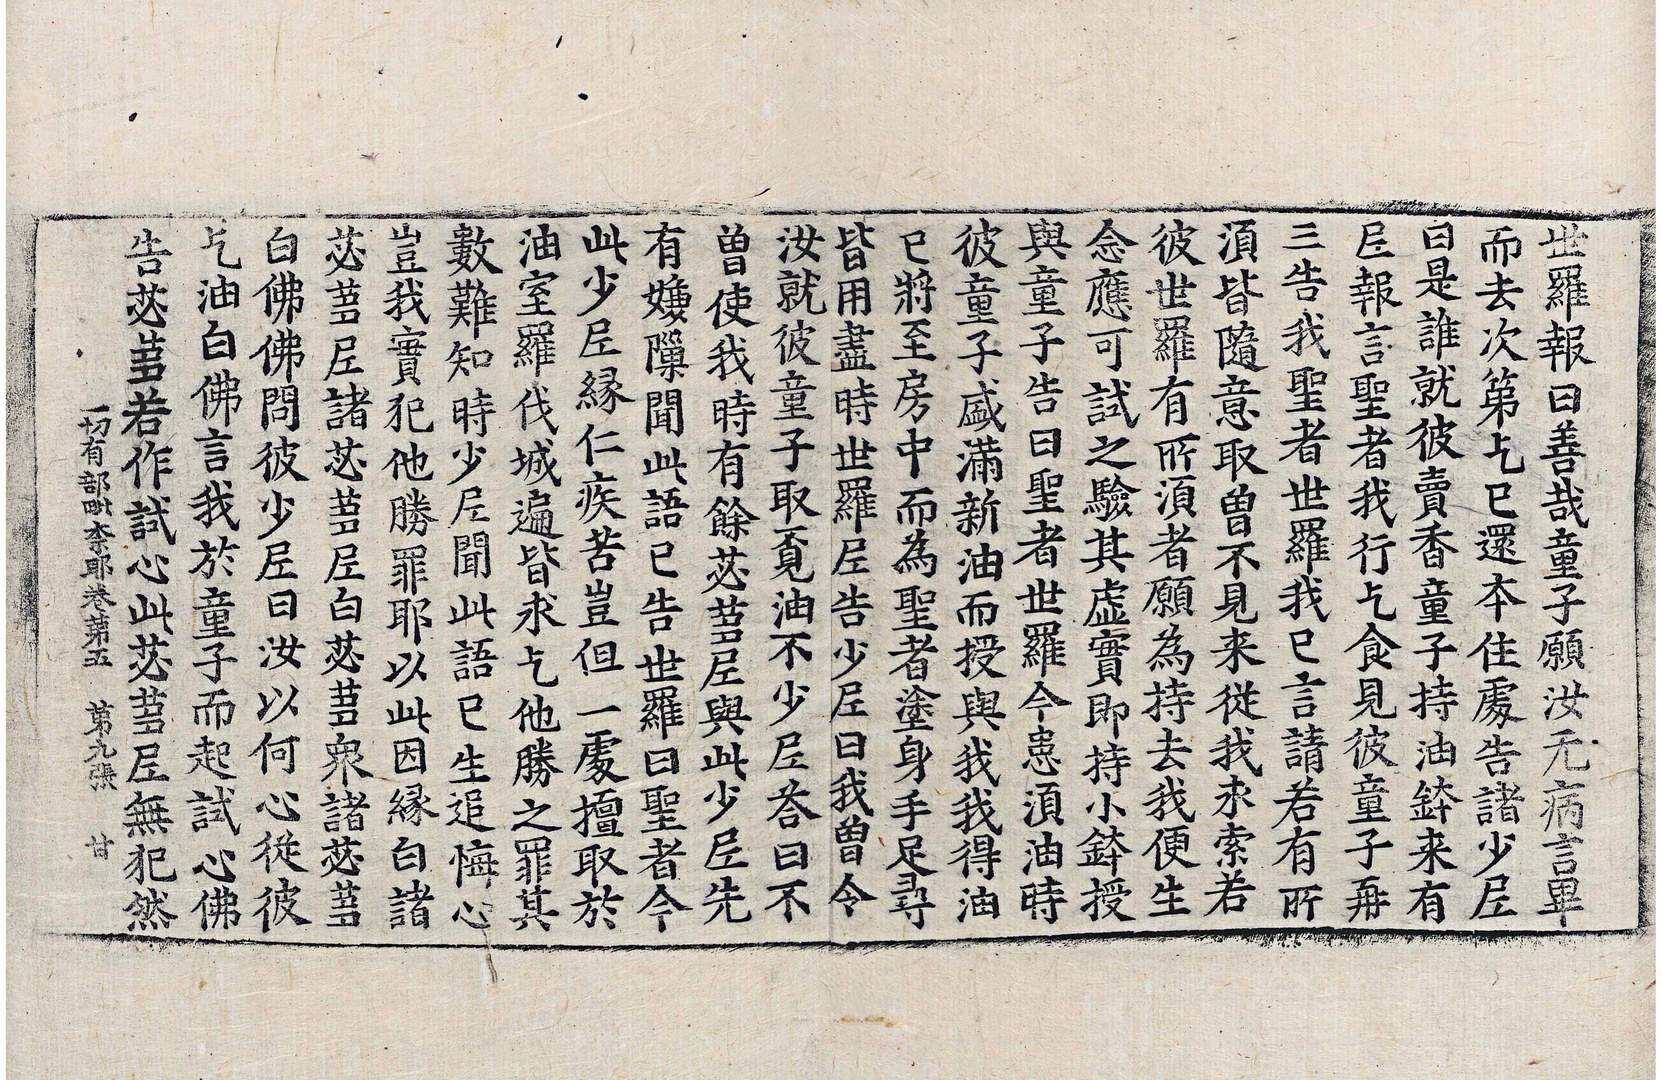 世羅報曰善哉童子願汝无病言畢
而去次第乞已還本住處告諸少尼
曰是誰就彼賣香童子持油鉢来有
尼報言聖者我行乞食見彼童子再
三告我聖者世羅我已言請若有所
須皆隨意取曾不見来從我求索若
彼世羅有所須者願為持去我便生
念應可試之驗其虛實即持小鉢授
與童子告曰聖者世羅今患須油時
彼童子盛滿新油而授與我我得油
已將至房中而為聖者塗身手足尋
皆用盡時世羅尼告少尼曰我曾令
汝就彼童子取覔油不少尼荅曰不
曾使我時有餘苾蒭尼與此少尼先
有嫌隟聞此語已告世羅曰聖者今
此少尼縁仁疾苦豈但一處擅取於
油室羅伐城遍皆求乞他勝之罪其
數難知時少尼聞此語已生追悔心
豈我實犯他勝罪耶以此因縁白諸
苾蒭尼諸苾蒭尼白苾蒭衆諸苾蒭
白佛佛問彼少尼曰汝以何心從彼
乞油白佛言我於童子而起試心佛
告苾蒭若作試心此苾蒭尼無犯然
一切有部毗奈耶卷第五 第九張 甘